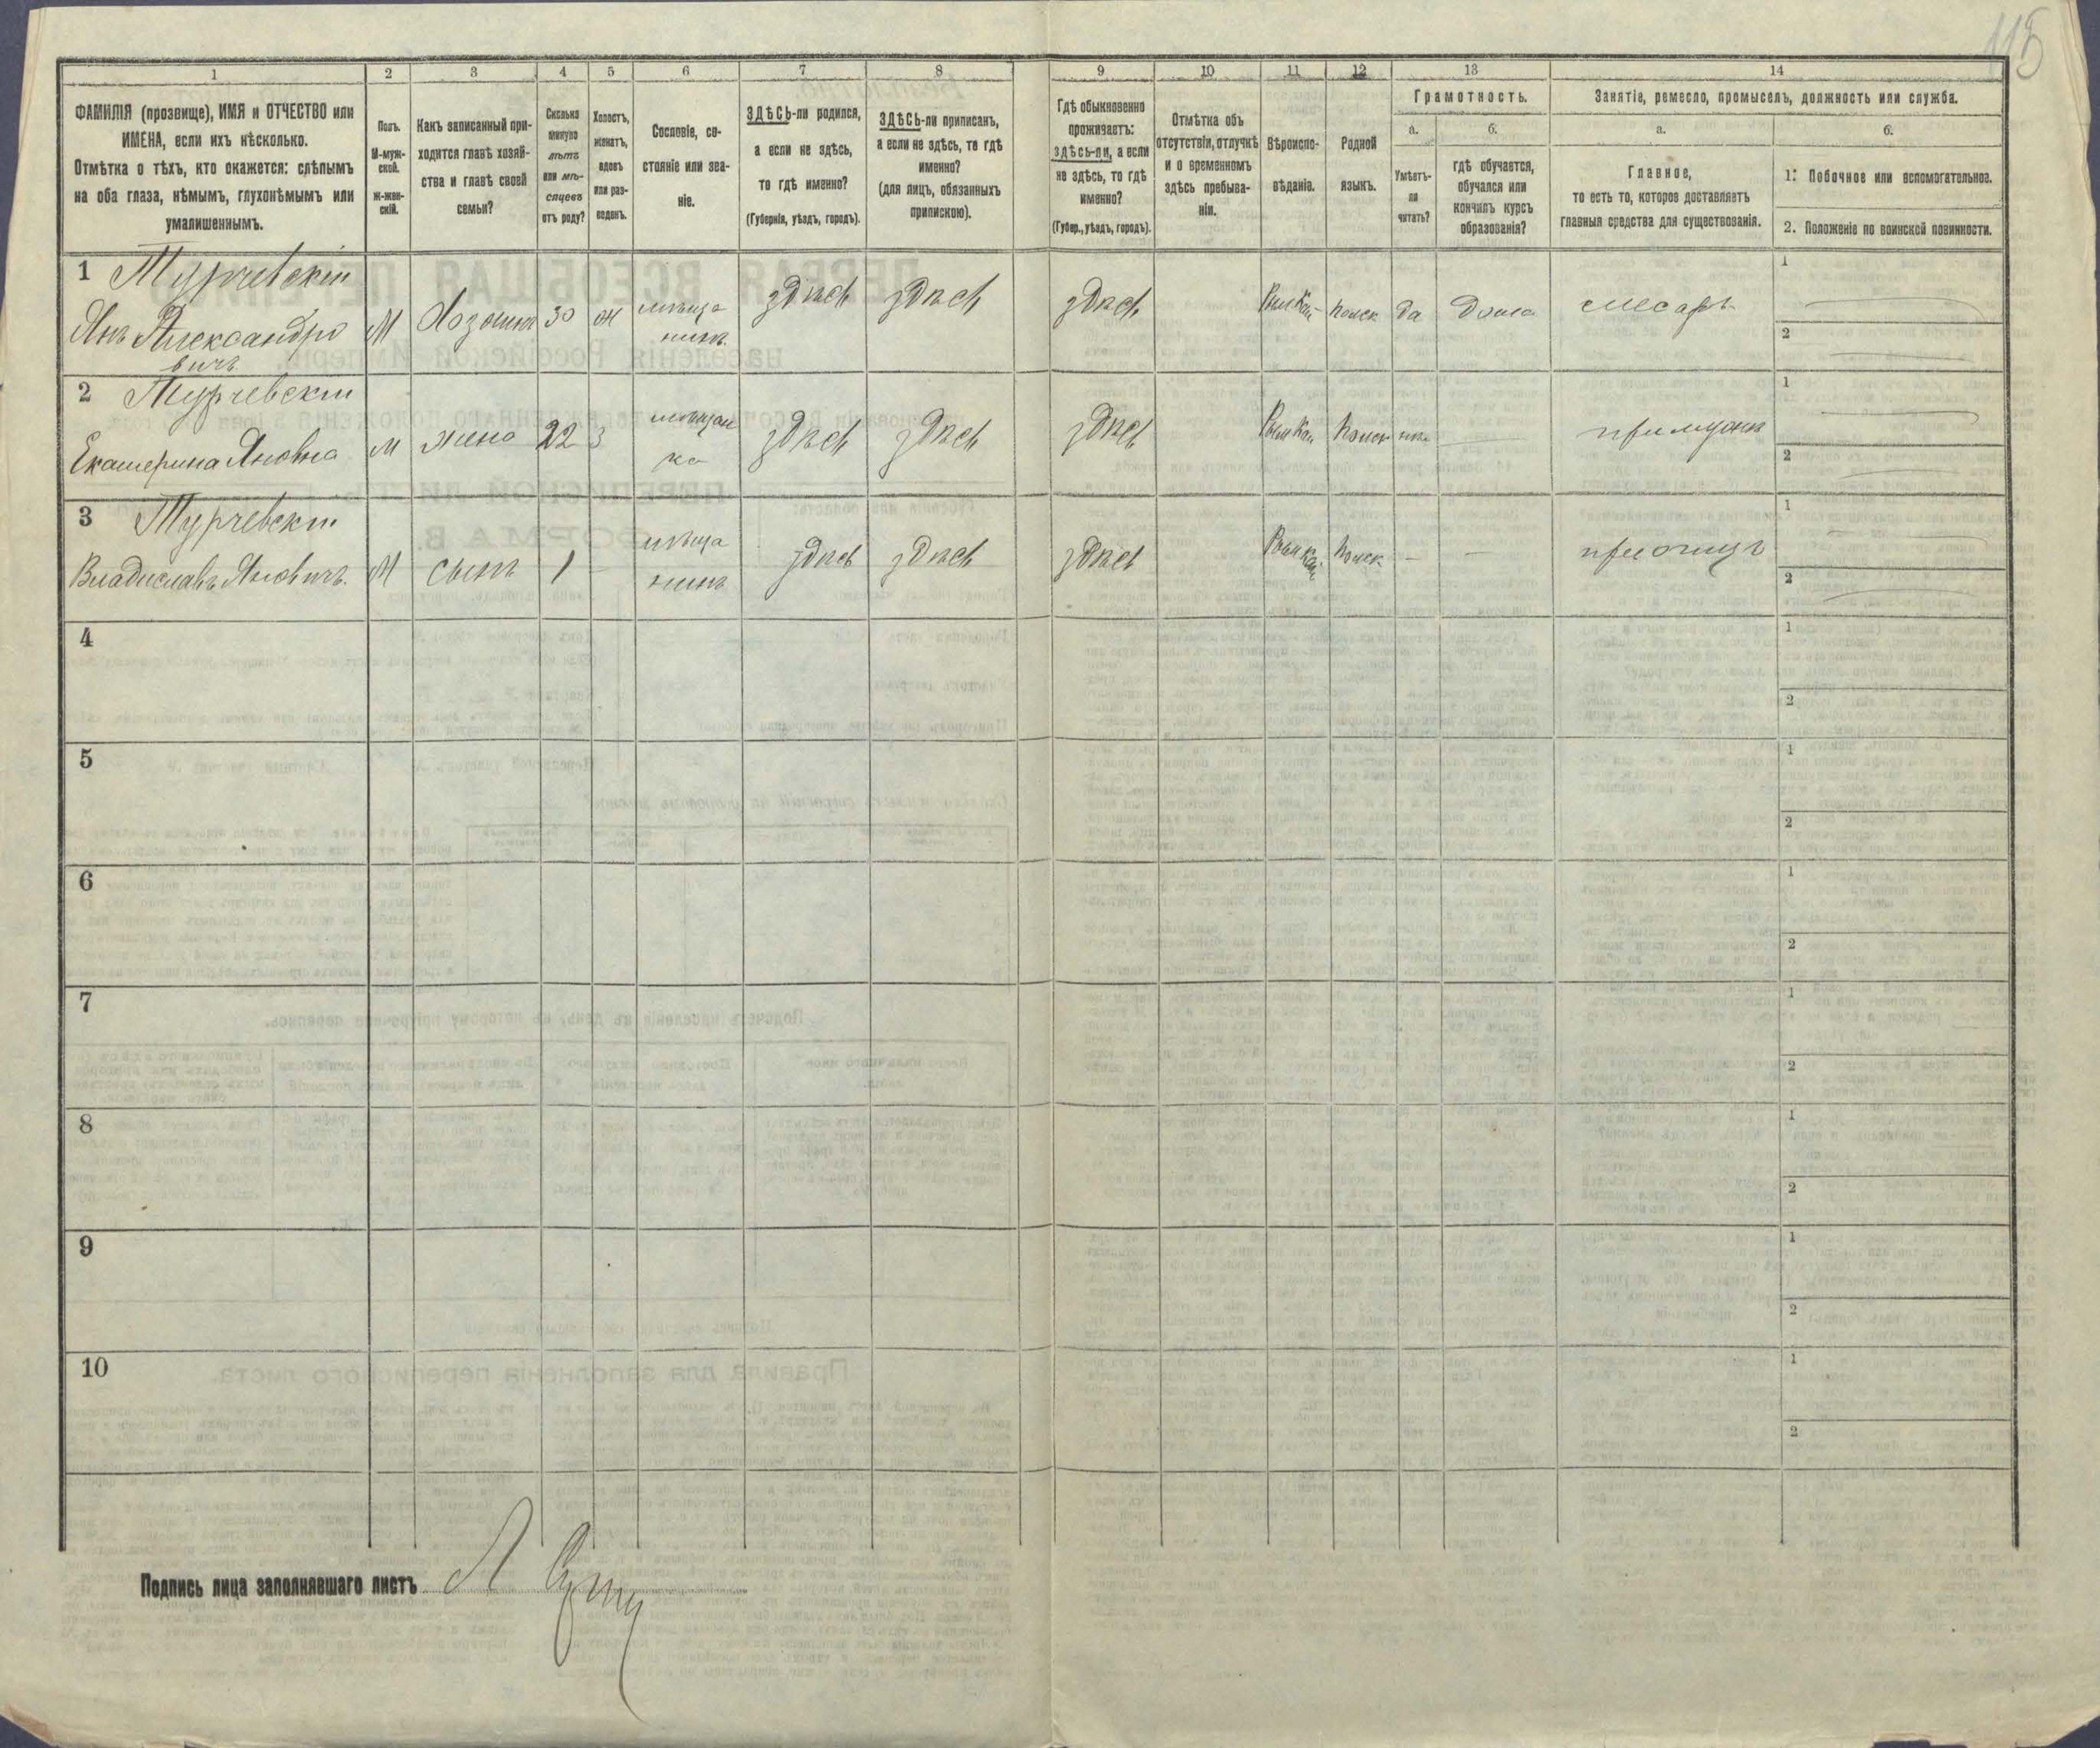 115
1 2 3 4 5 6 7 8 9 10 11 12 13 14
ФАМИЛІЯ (прозвище), ИМЯ и ОТЧЕСТВО или
ИМЕНА, если ихъ нѣсколько.
Отмѣтка о тѣхъ, кто окажется: слѣпымъ
на оба глаза, нѣмымъ, глухонѣмымъ или
умалишеннымъ.
Полъ.
М-муж-
ской.
Ж-жен-
скій.
Какъ записанный при-
ходится главѣ хозяй-
ства и главѣ своей
семьи?
Сколько
минуло
лѣтъ
или мѣ-
сяцевъ
отъ роду?
Холостъ,
женатъ,
вдовъ
или раз-
веденъ.
Сословіе, со-
стояніе или зва-
ніе.
ЗДѢСЬ-ли родился,
а если не здѣсь,
то гдѣ именно?
(Губернія, уѣздъ, городъ).
ЗДѢСЬ-ли приписанъ,
а если не здѣсь, то гдѣ
именно?
(для лицъ, обязанныхъ
припискою).
Гдѣ обыкновенно
проживаетъ:
здѣсь-ли, а если
не здѣсь, то гдѣ
именно?
(Губер., уѣздъ, городъ).
Отмѣтка объ
отсутствіи, отлучкѣ
и о временномъ
здѣсь пребыва-
ніи.
Вѣроиспо-
вѣданіе.
Родной
языкъ.
Грамотность.
а.
Умѣетъ-
ли
читать?
б.
гдѣ обучается,
обучался или
кончилъ курсъ
образованія?
Занятіе, ремесло, промыселъ, должность или служба.
а.
Главное,
то есть то, которое доставляетъ
главныя средства для существованія.
б.
1. Побочное или вспомогательное.
2. Положеніе по воинской повинности.
1 Турчевскій
Янъ Александро
вичъ
М Хозяинъ 30 ж мѣща
нинъ
здѣсь здѣсь здѣсь Рим Кат. польск да Дома слесаръ
1
2
2 Турчевскій
Екатерина Яновна
М жена 22 з мѣщан
ка
здѣсь здѣсь здѣсь Рим Кат польск нѣ — при мужѣ
1
2
3 Турчевскій
Владиславъ Яновичъ.
М сынъ 1 — мѣща
нинъ
здѣсь здѣсь здѣсь Рим Кат. польск — — при отцѣ
1
2
4
1
2
5
1
2
6
1
2
7
1
2
8
1
2
9
1
2
10
1
2
Подпись лица заполнявшаго листъ